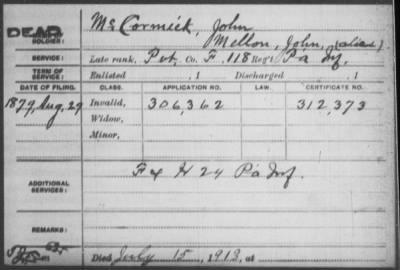 DEAD
Mc Cormick, John
SOLDIER:
Mellon, John, (alias).
SERVICE: Late rank, Pvt, Co. F, 118 Reg't Pa Inf,
TERM OF SERVICE: Enlisted , 1 Discharged , 1
DATE OF FILING. CLASS. APPLICATION NO. LAW. CERTIFICATE NO.
1879, Aug. 29 Invalid, 306,362 312,373
Widow,
Minor,
F & H 24 Pa Inf.
ADDITIONAL SERVICES:
REMARKS:
Died July 15, 1913, at